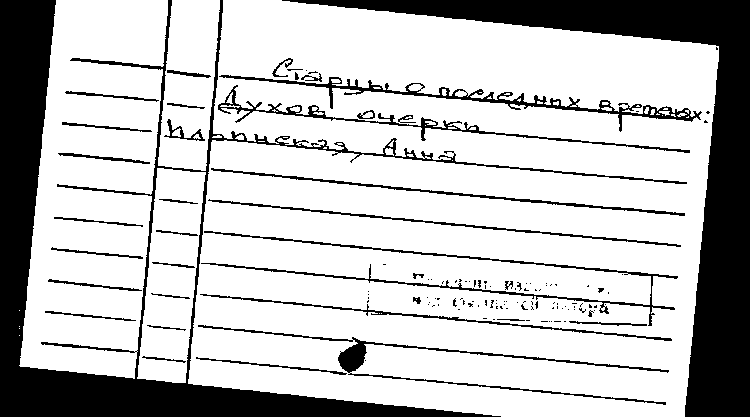 Старцы о последных временах:
Духов. очерки
Ильинская, Анна
под фамилией автора